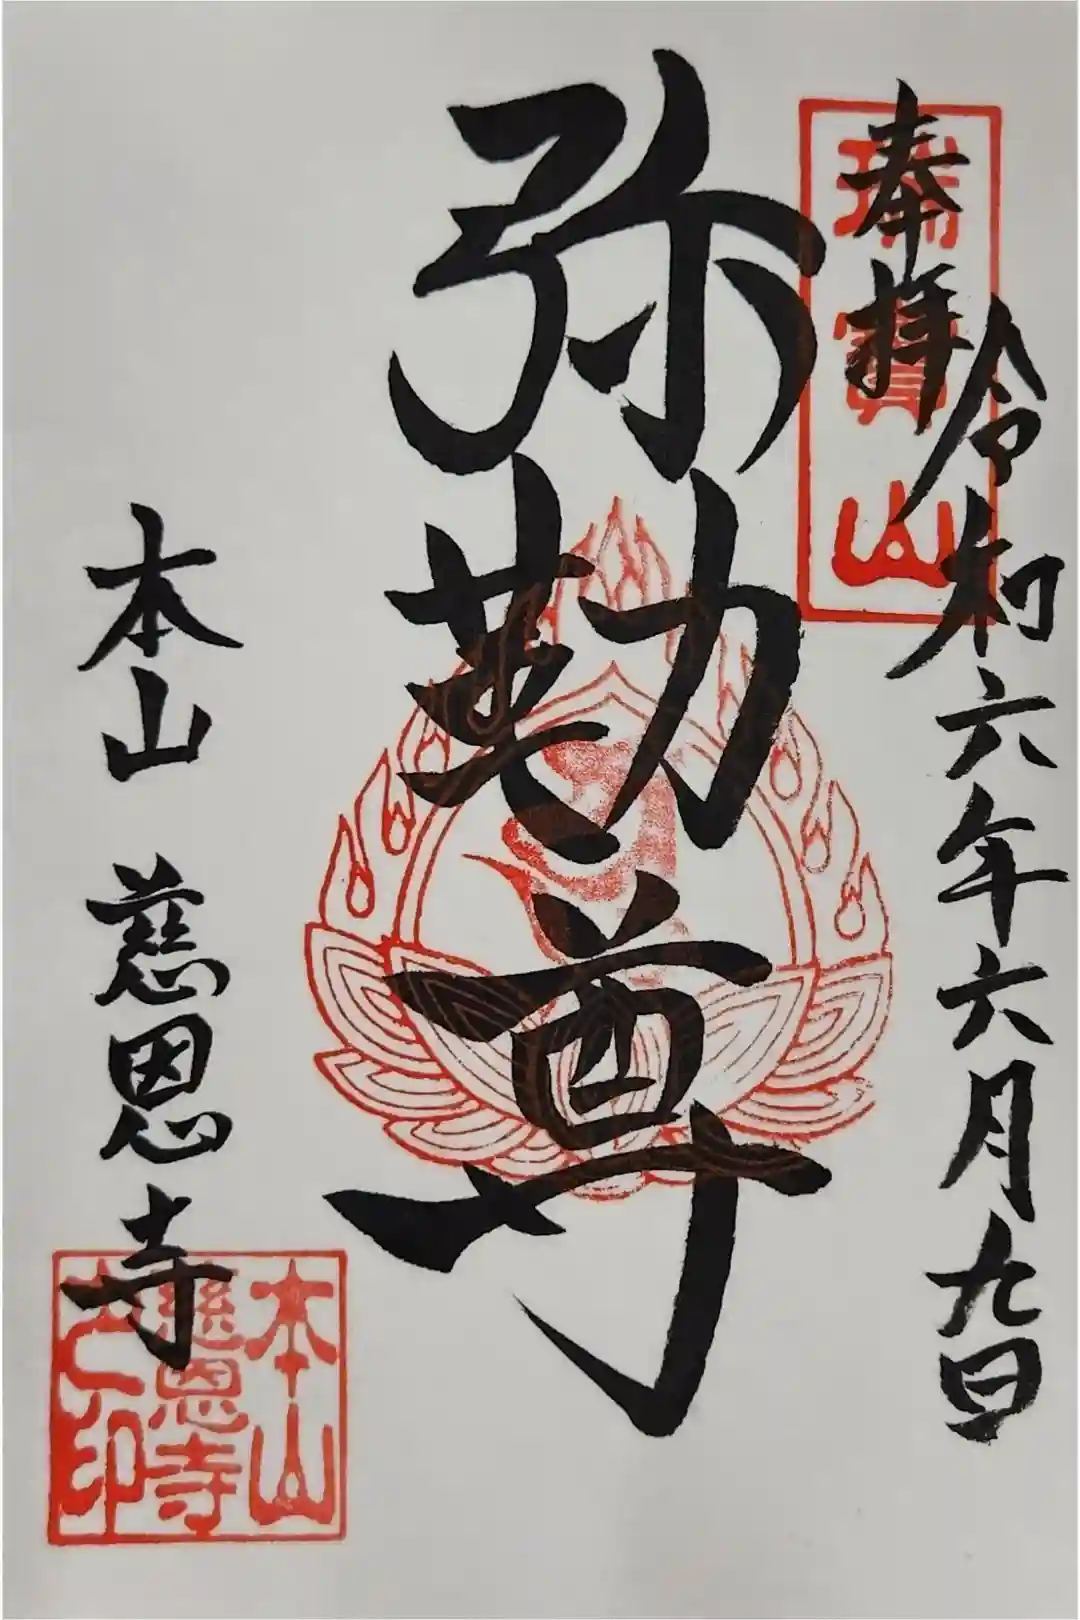 奉拝
瑞寳山
令和六年六月九日
弥勒尊
本山 慈恩寺
本山
慈恩寺
之印